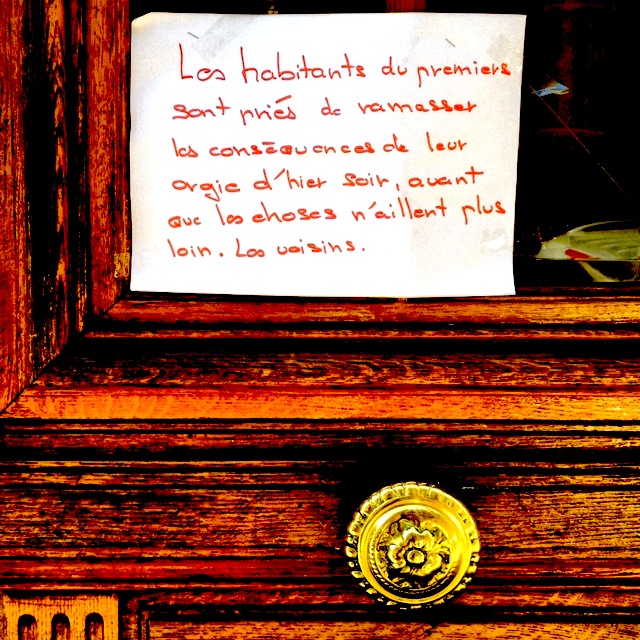 Les habitants du premiers
sont priés de ramasser
les conséquences de leur
orgie d'hier soir, avant
que les choses n'aillent plus
loin. Les voisins.